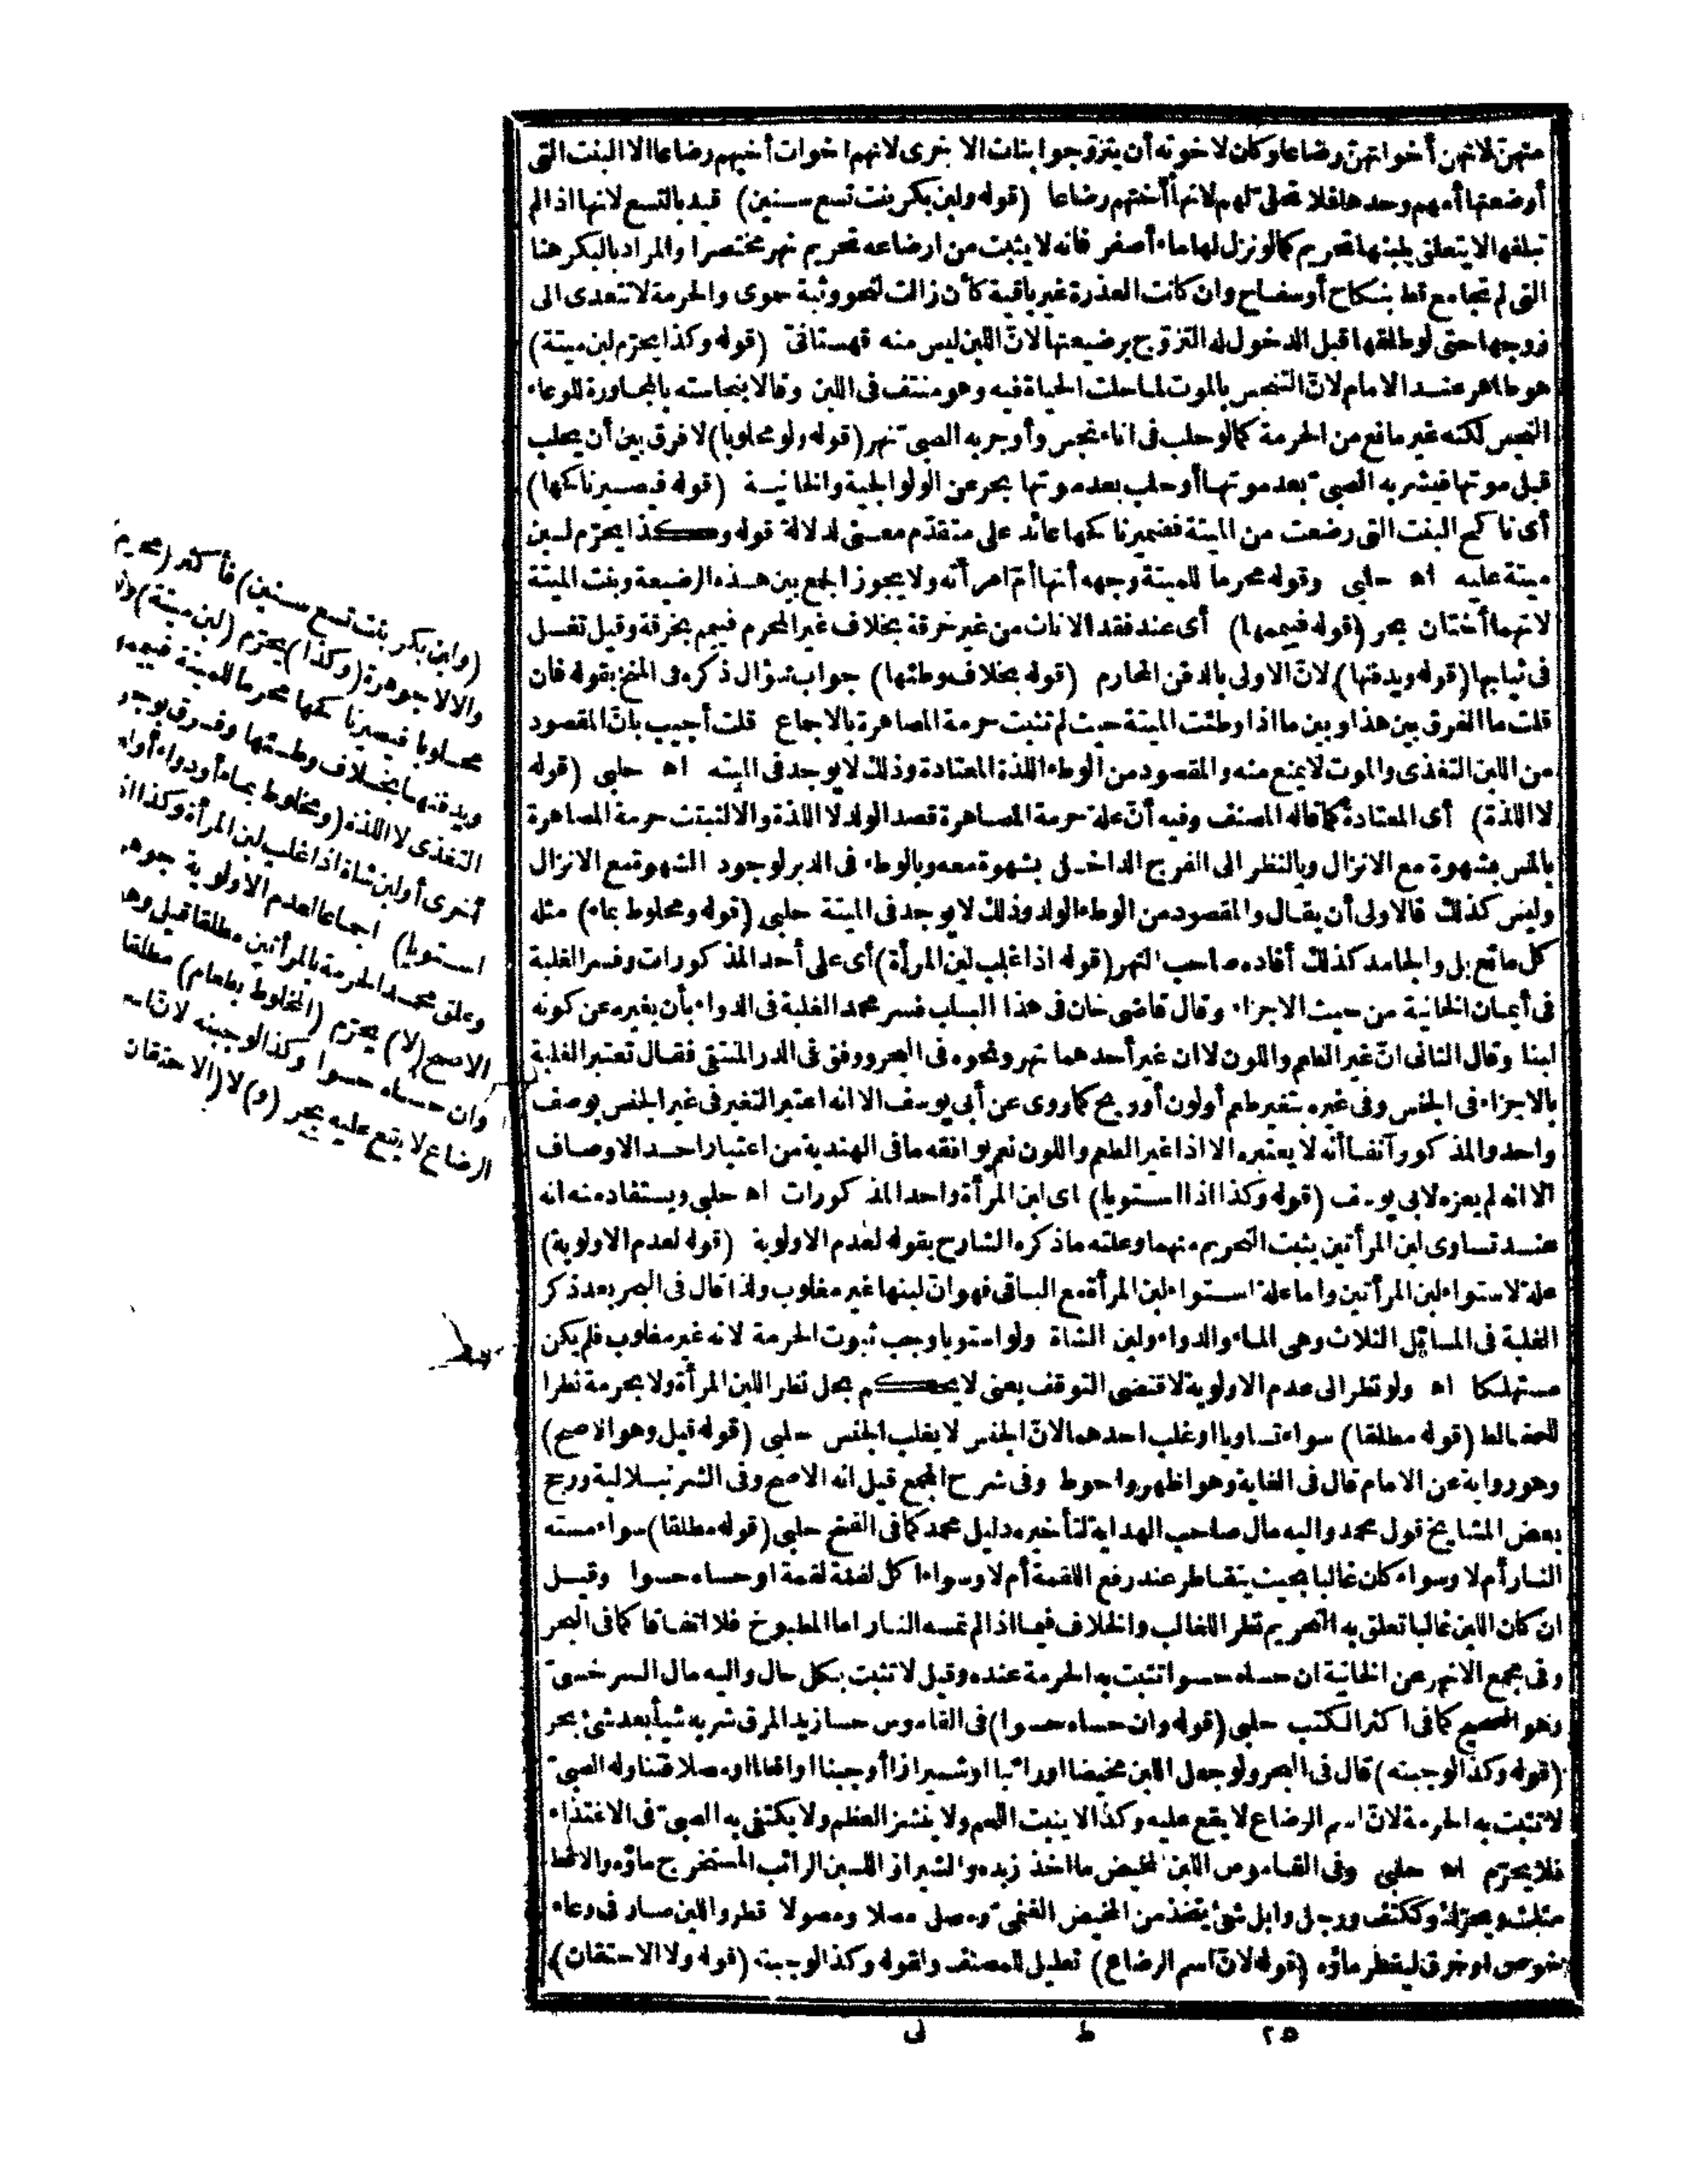 منهن لانهن أخواتهن رضاعا وكان لاخوته أن يتزوجوا بنات الاخرى لانهم اخوات أخيهم رضاعا الا البنت التى
أرضعتها أمهم وحدها فلا تحل لهم لانها أختهم رضاعا (قوله ولبن بكر بنت تسع سنين) قيد بالتسع لانها اذا لم
تبلغها لا يتعلق بلبنها تحريم كما لو نزل لها ماء أصفر فانه لا يثبت من ارضاعه تحريم نهر مختصرا والمراد بالبكر هنا
التى لم تجامع قط بنكاح أو سفاح وان كانت العذرة غير باقية كأن زالت لنحو وثبة حموى والحرمة لا تتعدى الى
زوجها حتى لو طلقها قبل الدخول له التزوج برضيعتها لان اللبن ليس منه قهستانى (قوله وكذا يحرم لبن ميتة)
هو طاهر عند الامام لان التنجس بالموت لما حلت الحياة فيه وهو منتف فى اللبن وقالا بنجاسته بالمجاورة للوعاء
النجس لكنه غير مانع من الحرمة كما لو حلب فى اناء نجس وأوجر به الصبى نهر (قوله ولو محلوبا) لا فرق بين أن يحلب
قبل موتها فيشربه الصبى بعد موتها أو حلب بعد موتها بحر عن الولوالجية والخانية (قوله فيصير ناكحها)
أى ناكح البنت التى رضعت من الميتة فضمير ناكحها عائد على متقدم معنى لدلالة قوله وكذا يحرم لبن
ميتة عليه اه حلبى وقوله محرما للميتة وجهه أنها أم امرأته ولا يجوز الجمع بين هذه الرضيعة وبنت الميتة
لانهما أختان بحر (قوله فييممها) أى عند فقد الاناث من غير خرقة بخلاف غير المحرم فييمم بخرقة وقيل تغسل
فى ثيابها (قوله ويدفنها) لان الاولى بالدفن المحارم (قوله بخلاف وطئها) جواب سؤال ذكره فى المنح بقوله فان
قلت ما الفرق بين هذا وبين ما اذا وطئت الميتة حيث لم تثبت حرمة المصاهرة بالاجماع قلت أجيب بان المقصود
من اللبن التغذى والموت لا يمنع منه والمقصود من الوطء اللذة المعتادة وذلك لا يوجد فى الميته اه حلبى (قوله
لا اللذة) أى المعتادة كما قاله المصنف وفيه أن علة حرمة المصاهرة قصد الولد لا اللذة والا لثبتت حرمة المصاهرة
بالمس بشهوة مع الانزال وبالنظر الى الفرج الداخلى بشهوة معه وبالوطء فى الدبر لوجود الشهوة مع الانزال
وليس كذلك فالاولى أن يقال والمقصود من الوطء الولد وذلك لا يوجد فى الميتة حلبى (قوله ومخلوط بماء) مثله
كل مائع بل والجامد كذلك أفاده صاحب النهر (قوله اذا غلب لبن المرأة) أى على أحد المذكورات وفسر الغلبة
فى أيمان الخانية من حيث الاجزاء وقال قاضى خان فى هذا الباب فسر محمد الغلبة فى الدواء بأن يغيره عن كونه
لبنا وقال الثانى ان غير الطعم واللون لا ان غير أحدهما نهر ونحوه فى البحر ووفق فى الدر المنتقى فقال تعتبر الغلبة
بالاجزاء فى الجنس وفى غيره بتغير طعم أو لون أو ريح كما روى عن أبى يوسف الا انه اعتبر التغير فى غير الجنس بوصف
واحد والمذكور آنفا أنه لا يعتبره الا اذا غير الطعم واللون نعم يوافقه ما فى الهندية من اعتبار احد الاوصاف
الا انه لم يعزه لابى يوسف (قوله وكذا اذا استويا) اى لبن المرأة واحد المذكورات اه حلبى ويستفاد منه انه
عند تساوى لبن المرأتين يثبت التحريم منهما وعلته ما ذكره الشارح بقوله لعدم الاولوية (قوله لعدم الاولوية)
علة لاستواء لبن المرأتين واما علة استواء لبن المرأة مع الباقى فهو ان لبنها غير مغلوب ولذا قال فى البحر بعد ذكر
الغلبة فى المسائل الثلاث وهى الماء والدواء ولبن الشاة ولو استويا وجب ثبوت الحرمة لانه غير مغلوب فلم يكن
مستهلكا اه ولو نظر الى عدم الاولوية لاقتضى التوقف يعنى لا يحكم بحل نظرا للبن المرأة ولا بحرمة نظرا
للمخالط (قوله مطلقا) سواء تساويا او غلب احدهما لان الجنس لا يغلب الجنس حلبى (قوله قيل وهو الاصح)
وهو رواية عن الامام قال فى الغاية وهو اظهر واحوط وفى شرح المجمع قيل انه الاصح وفى الشرنبلالية ورجح
بعض المشايخ قول محمد واليه مال صاحب الهداية لتأخيره دليل محمد كما فى الفتح حلبى (قوله مطلقا) سواء مسته
النار أم لا وسواء كان غالبا بحيث يتقاطر عند رفع اللقمة أم لا وسواء اكل لقمة لقمة او حساه حسوا وقيل
ان كان اللبن غالبا تعلق به التحريم نظر اللغالب والخلاف فيما اذا لم تمسه النار اما المطبوخ فلا اتفاقا كما فى البحر
وفى مجمع الانهر عن الخانية ان حساه حسوا تثبت به الحرمة عنده وقيل لا تثبت بكل حال واليه مال السرخسى
وهو الصحيح كما فى اكثر الكتب حلبى (قوله وان حساه حسوا) فى القاموس حسا زيد المرق شربه شيأ بعد شئ بحر
(قوله وكذا لو جبنه) قال فى البحر ولو جعل اللبن مخيضا او رائبا او شيرازا أو جبنا او اقطا او مصلا فتناوله الصبى
لا تثبت به الحرمة لان اسم الرضاع لا يقع عليه وكذا لا ينبت اللحم ولا ينشز العظم ولا يكتفى به الصبى فى الاغتذاء
فلا يحرم اه حلبى وفى القاموس اللبن المخيض ما اخذ زبده والشيراز اللبن الرائب المستخرج ماؤه والاقط
مثلث ويحرك وككتف ورجل وابل شئ يتخذ من المخيض الغنمى ومصل مصلا ومصولا قطر واللبن صار فى وعاء
خوص او خرق ليقطر ماؤه (قوله لان اسم الرضاع) تعليل للمصنف ولقوله وكذا لو جبنه (قوله ولا الاحتقان)
٢٥ ط لى
(ولبن بكر بنت تسع سنين) فأكثر (محرم
والا لا جوهرة (وكذا) يحرم (لبن ميتة)
محلوبا فيصير ناكحها محرما للميتة فييممها
ويدفنها بخلاف وطئها وفرق بوجو
التغذى لا اللذة (ومخلوط بماء أو دواء أو لبن
أخرى أو لبن شاة اذا غلب لبن المرأة وكذا اذا
استويا) اجماعا لعدم الاولوية جوهر
وعلق محمد الحرمة بالمرأتين مطلقا قيل وهو
الاصح (لا) يحرم (المخلوط بطعام) مطلقا
وان حساه حسوا وكذا لو جبنه لان اسم
الرضاع لا يقع عليه بحر (و) لا (الاحتقان